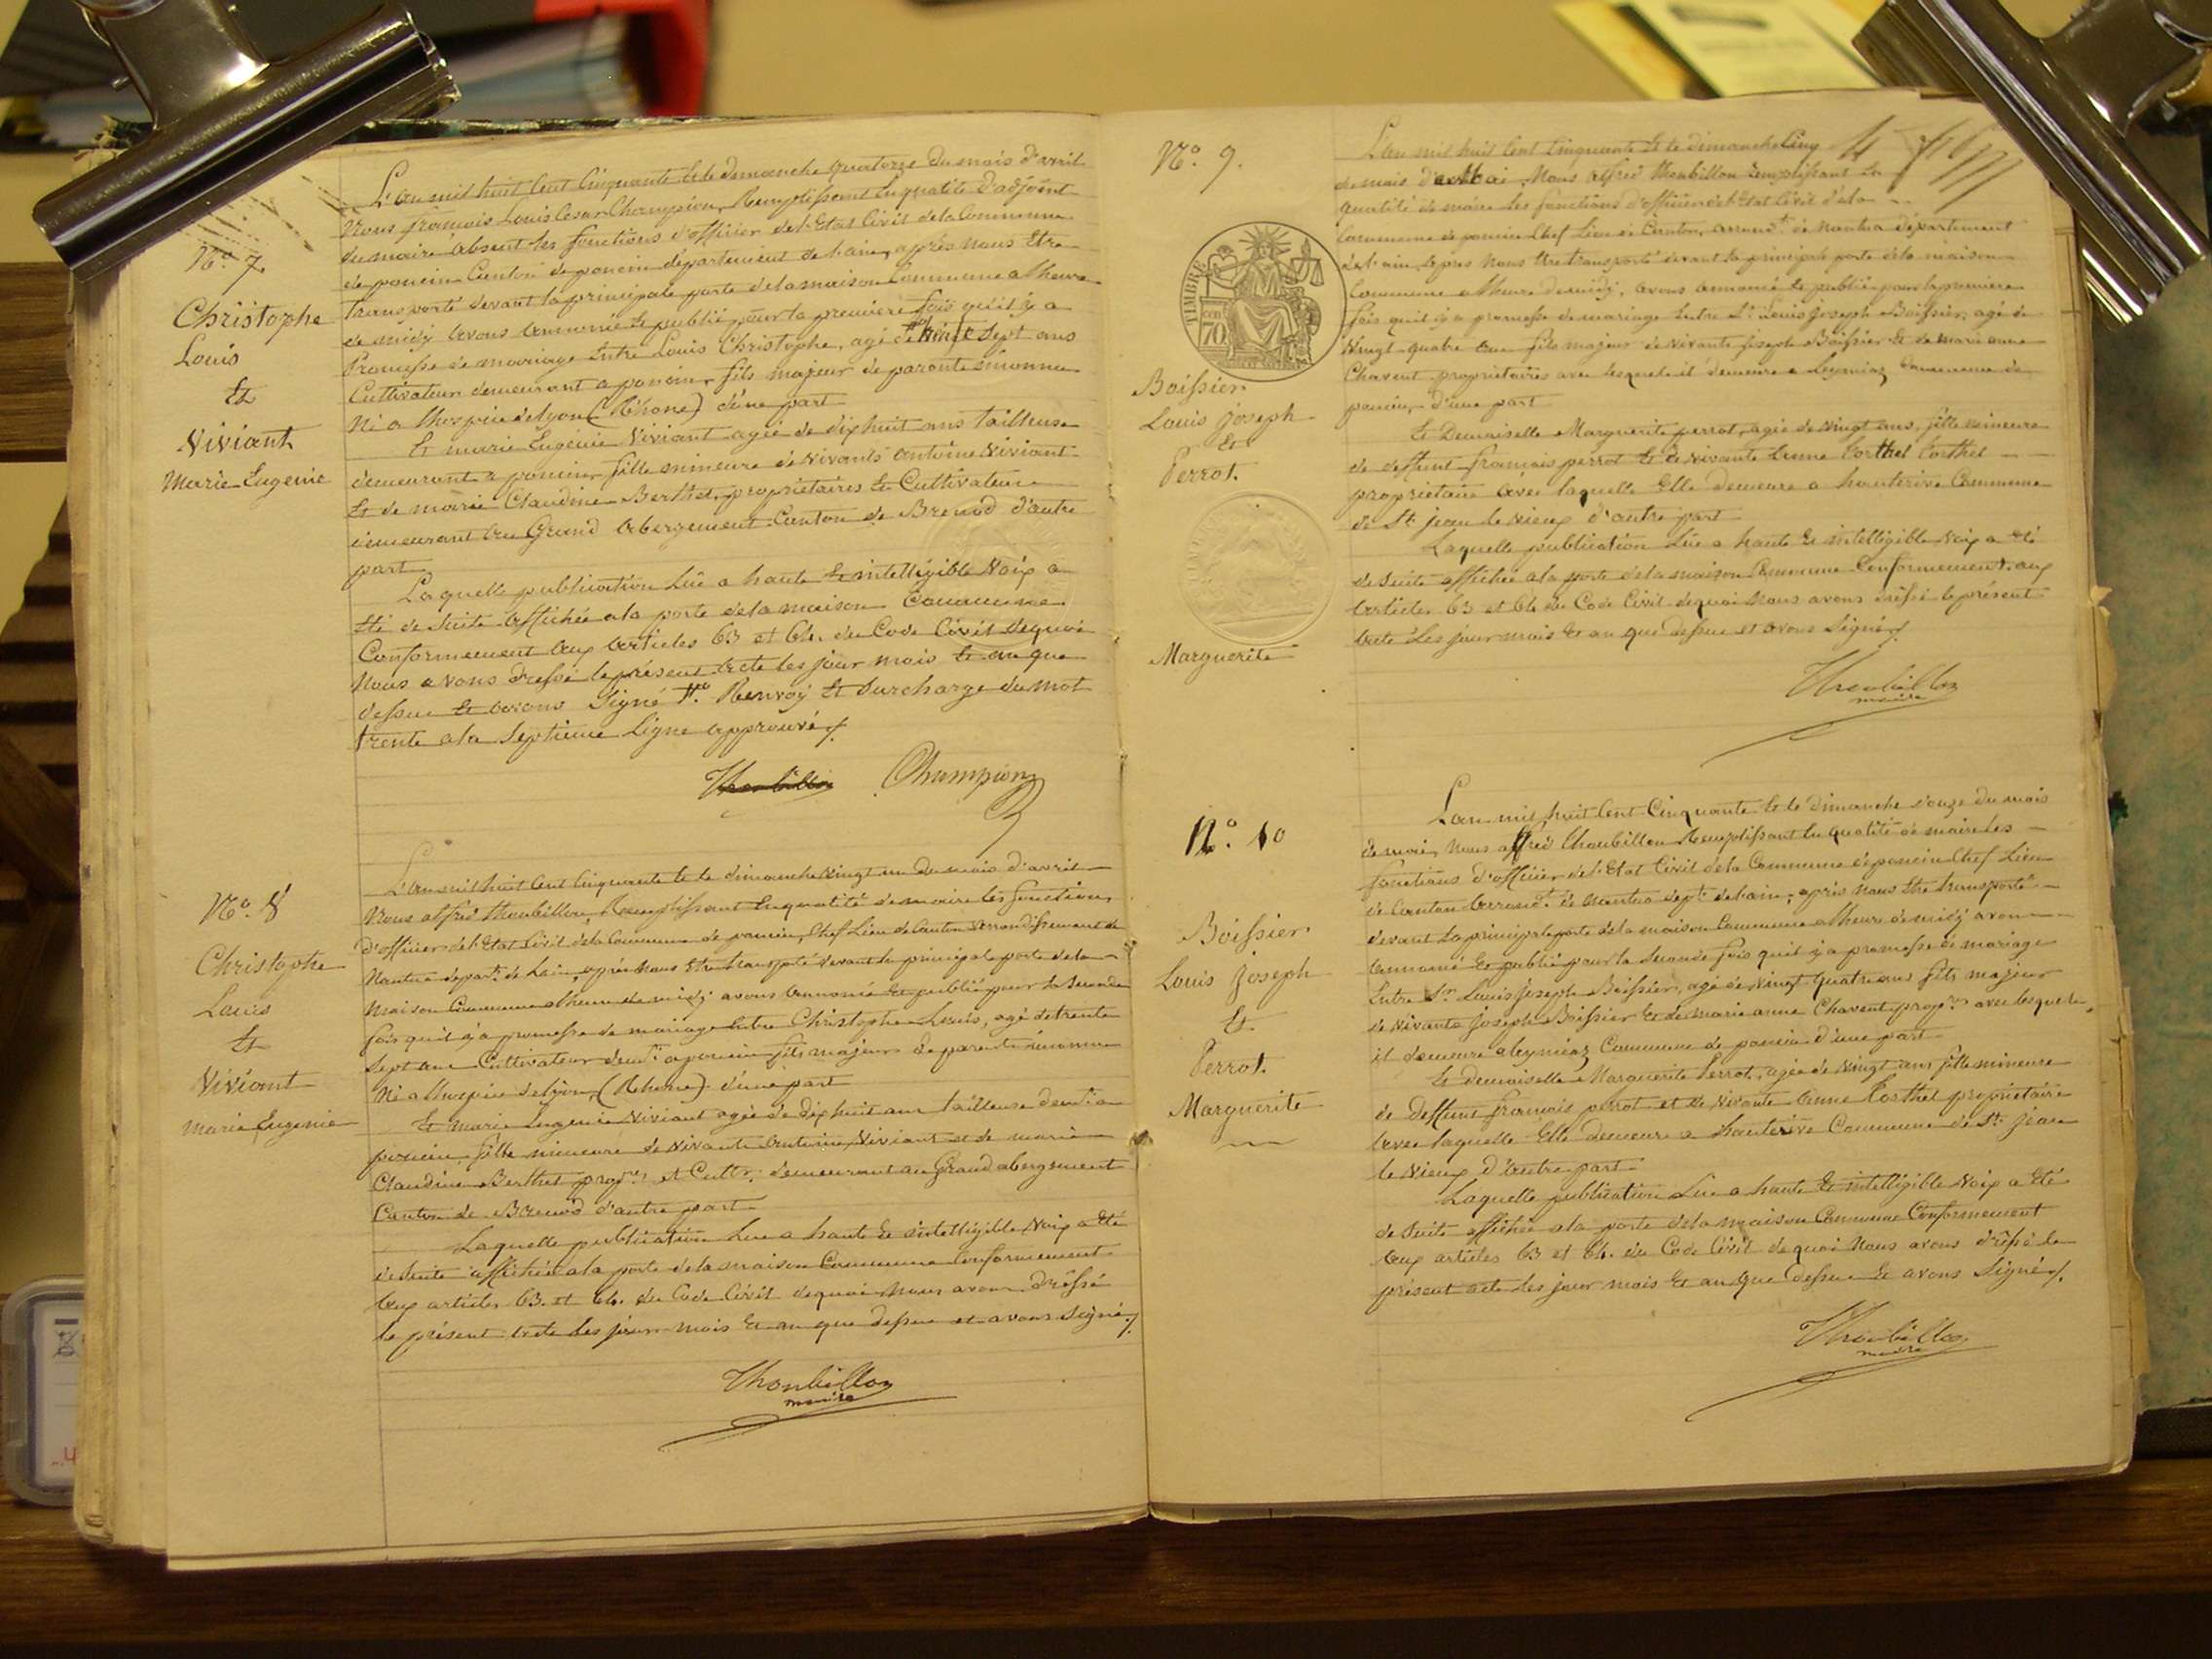 N.o 7
Christophe
Louis
Et
Viviant
Marie Eugenie
L'an mil huit Cent Cinquante Et le dimanche quatorze du mois d'avril
Nous françois Louis Cesar Champion, Remplissant En qualité d'adjoint
du maire absent les fonctions d'officier de l'Etat Civil de la Commune
de poncin Canton de poncin département de l'ain, après nous Etre
transporté devant la principale porte de la maison Commune a l'heure
de midy avons annoncé Et publié pour la première fois qu'il y a
Promesse de mariage Entre Louis Christophe, agé de sept ans
Cultivateur demeurant a poncin, fils majeur de parents inconnu
Né a l'hospice de lyon (Rhone) d'une part
Et marie Eugénie Viviant agée de dix huit ans tailleuse
demeurant a poncin, fille mineure de vivants antoine Viviant
Et de marie Claudine Berthet, propriétaires Et Cultivateurs
demeurant au Grand abergement Canton de Brenod d'autre
part
Laquelle publication Lue a haute Et intelligible Voix a
Eté de Suite affichée a la porte de la maison Commune
Conformement aux articles 63 et 64. du Code Civil dequoi
Nous avons dressé le présent acte les jour mois Et an que
dessus Et avons Signé Renvoy Et Surcharge du mot
trente a la Septieme Ligne approuvé
Thoubillon Champion
N.o 8
Christophe
Louis
Et
Viviant
marie Eugenie
L'an mil huit Cent Cinquante Et le dimanche vingt un du mois d'avril
Nous alfred thoubillon, Remplissant En qualité de maire les fonctions
d'officier de l'Etat Civil de la Commune de poncin, Chef Lieu de Canton arrondissement de
Nantua depart.t de Lain, après nous Etre transporté devant la principale porte de la
maison Commune a l'heure de midi, avons annoncé Et publié pour la Seconde
fois qu'il y a promesse de mariage Entre Christophe Louis, agé de trente
Sept ans Cultivateur dem.t a poncin fils majeur de parents inconnu
Né a l'hospice de lyon (Rhone) d'une part
Et marie Eugenie Viviant agée de dix huit ans tailleuse dem.t a
poncin fille mineure de vivants antoine Viviant et de marie
Claudine Berthet prop.res et Cult.rs demeurant au Grand abergement
Canton de Brenod d'autre part
Laquelle publication Lue a haute Et intelligible Voix a Eté
de Suite affichée a la porte de la maison Commune Conformement
aux articles 63. et 64. du Code Civil dequoi Nous avons dressé
le présent acte les jour mois Et an que dessus et avons Signé
Thoubillon
maire
N.o 9.
TIMBRE
70
Boissier
Louis joseph
Et
Perrot.
Marguerite
L'an mil huit Cent Cinquante Et le dimanche Cinq
du mois de mai, Nous alfred thoubillon Remplissant En
qualité de maire les fonctions d'officier de l'Etat Civil de la
Commune de poncin Chef Lieu de Canton, arrond.t de Nantua département
de l'ain, après Nous Etre transporté devant la principale porte de la maison
Commune a l'heure de midi, avons annoncé Et publié pour la premiere
fois qu'il y a promesse de mariage Entre S.r Louis joseph Boissier, agé de
Vingt quatre ans fils majeur de vivants joseph Boissier Et de marie anne
Chavent propriétaires avec lesquels il demeure a Leymiaz Commune de
poncin, d'une part
Et Demoiselle Marguerite perrot, agée de vingt ans, fille mineure
de deffunt françois perrot Et de vivante anne Corthel Corthel
propriétaire avec laquelle Elle demeure a hauterive Commune
de St jean le vieux d'autre part
Laquelle publication Lue a haute Et intelligible Voix a Eté
de Suite affichée a la porte de la maison Commune Conformement aux
articles 63 et 64 du Code Civil dequoi Nous avons dressé le présent
acte Les jour mois Et an que dessus et avons Signé
Thoubillon
maire
N.o 10
Boissier
Louis joseph
Et
Perrot.
Marguerite
L'an mil huit Cent Cinquante Et le dimanche douze du mois
de mai, Nous alfred thoubillon Remplissant En qualité de maire les
fonctions d'officier de l'Etat Civil de la Commune de poncin Chef Lieu
de Canton arrond.t de Nantua dep.t de l'ain, après Nous Etre transporté
devant La principale porte de la maison Commune a l'heure de midy avons
annoncé Et publié pour la Seconde fois qu'il y a promesse de mariage
Entre S.r Louis joseph Boissier, agé de vingt quatre ans fils majeur
de vivants joseph Boissier Et de marie anne Chavent prop.res avec lesquels
il demeure a leymiaz Commune de poncin d'une part
Et demoiselle Marguerite Perrot, agée de vingt ans fille mineure
de deffunt françois perrot et de vivante anne Corthel propriétaire
avec laquelle Elle demeure a hauterive Commune de St jean
le vieux d'autre part
Laquelle publication Lue a haute Et intelligible Voix a Eté
de Suite affichée a la porte de la maison Commune Conformement
aux articles 63 et 64. du Code Civil dequoi Nous avons dressé le
présent acte les jour mois Et an que dessus Et avons Signé
Thoubillon
maire